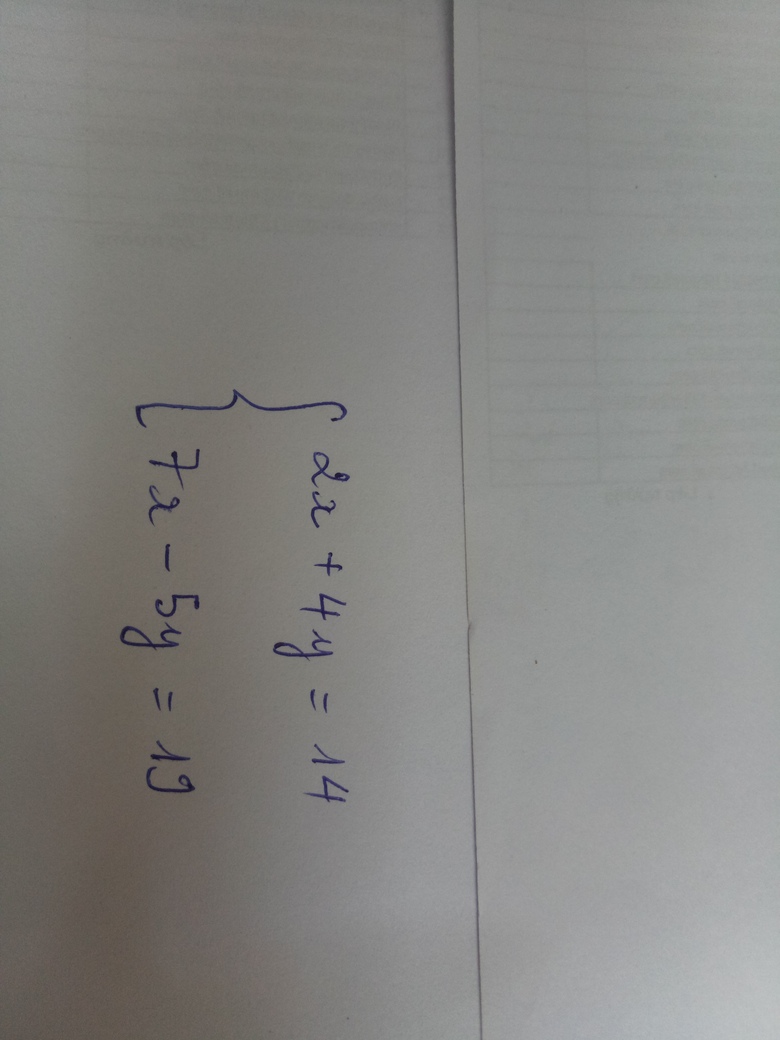 2x + 4y = 14
7x - 5y = 19